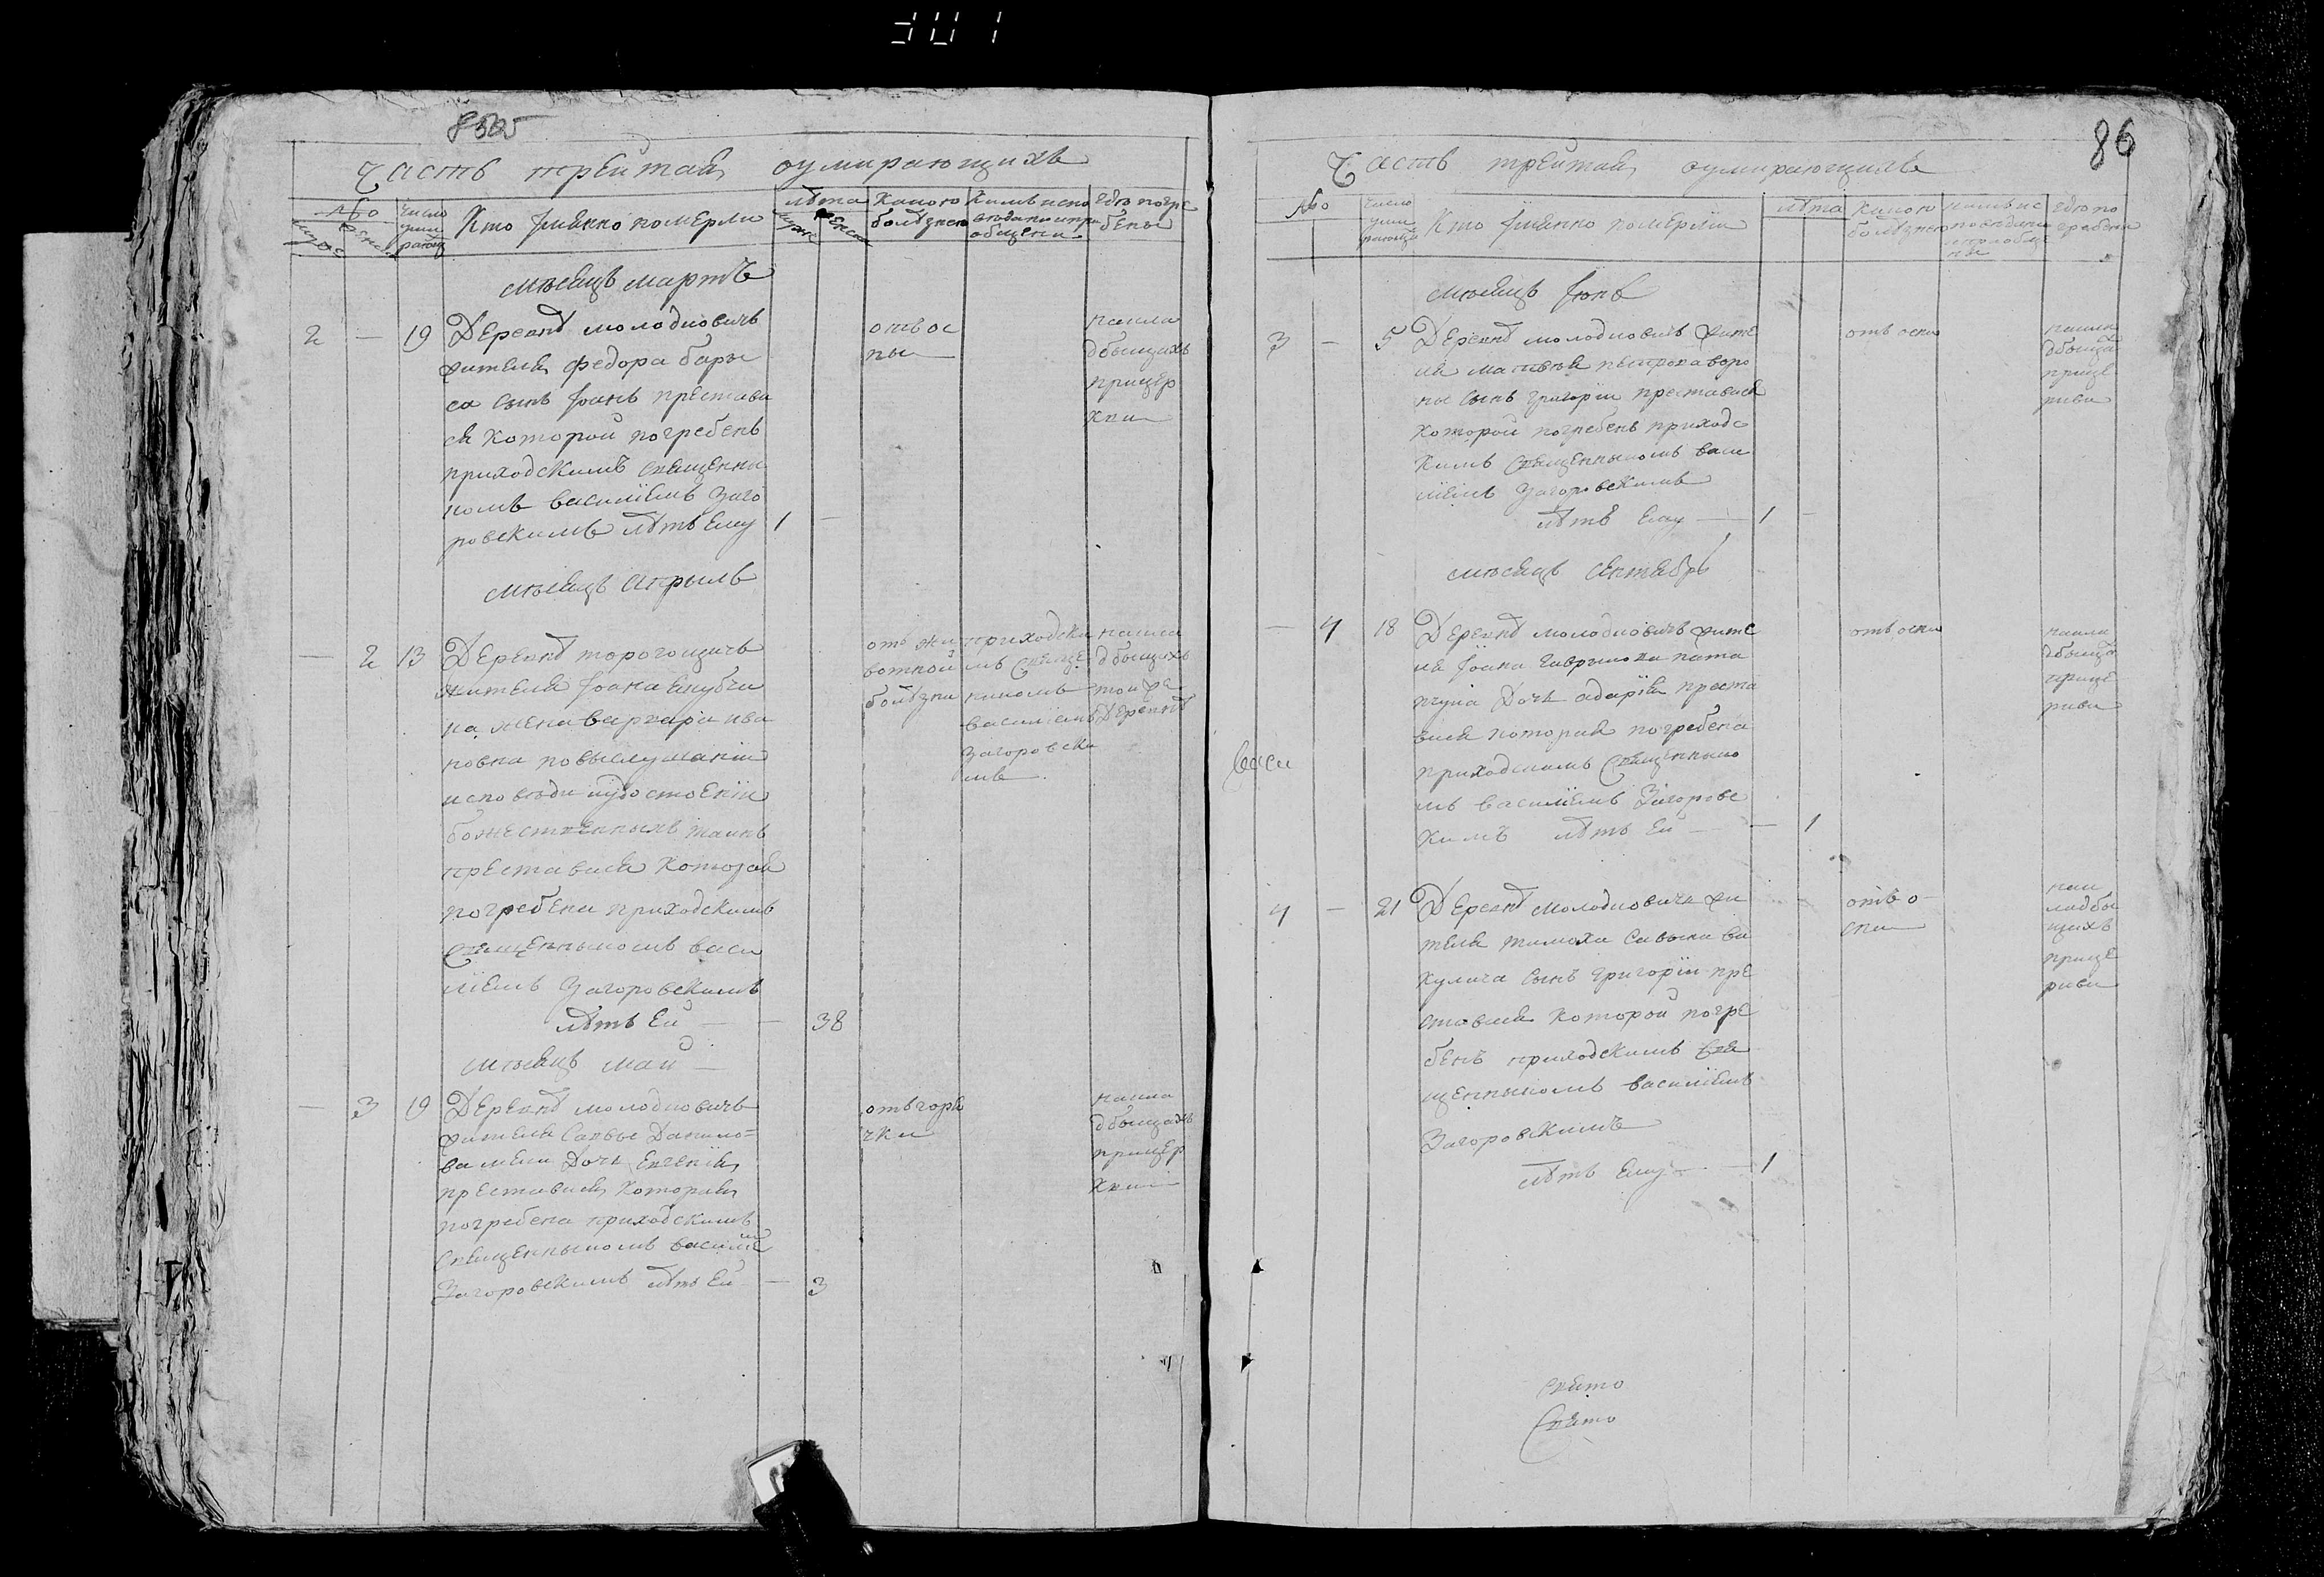 301
85об
Часть третая оумирающихъ
№о
мужес
женс
число умирающ
Кто имянно померли
лѣта
мужес
женск
Какою болѣзнею
Кимъ исповѣданы и приобщены
Гдѣ погребены
мѣсяцъ мартъ
2 — 19 Деревнѣ молодковичъ
жителя федора бары
са сынъ Іоанъ престави
ся которой погребенъ
приходскимъ священны
комъ василіемъ Заго
ровскимъ лѣтъ ему 1 —
отъ ос
пы
на кла
дбыщихъ
прицер
кви
мѣсяцъ Апрыль
— 2 13 Деревнѣ торогощичъ
жителя Іоана
на жена варвара ива
новна по выслушаніи
исповѣди иудостоеніи
божественныхъ таинъ
преставися которая
погребена приходскимъ
священныкомъ васи
ліемъ Загоровскимъ
лѣтъ ей — — 38
отъ жи
вотной
болѣзни
приходски
мъ свяще
никомъ
василіемъ
Загоровски
мъ
на кла
дбыщихъ
той же
деревнѣ
мѣсяцъ май
— 3 19 Деревнѣ молодковичъ
жителя Саввы Данило=
ва дочь Евгенія
преставися которая
погребена приходскимъ
священныкомъ василіемъ
Загоровскимъ лѣтъ ей — 3
отъ горя
чки
на кла
дбыщахъ
прицер
кви
86
Часть третая оумирающихъ
№о
число умирающи
Кто имянно померли
лѣта
Какою болѣзнею
кимъ исповѣданы и приобщены
гдѣ погребены
мѣсяцъ Іюнь
3 — 5 Деревнѣ молодковичъ жите
ля матвея петрова воро
ны сынъ григорій преставися
которой погребенъ приходс
кимъ священныкомъ васи
ліемъ Загоровскимъ
лѣтъ ему — 1 —
отъ оспы
на кла
дбыща
прице
ркви
мѣсяцъ сентябрь
— 4 18 Деревнѣ молодковичъ жите
ля Іоана гаврылова
дочь дарія преста
вися которая погребена
приходскимъ священныко
мъ василіемъ Загоровс
кимъ лѣтъ ей — — 1
отъ оспы
на кла
дбыща
прице
ркви
васи
4 — 21 Деревнѣ молодковичъ жи
теля тимоха
сынъ григорій пре
ставися которой погре
бенъ приходскимъ свя
щенныкомъ василіемъ
Загоровскимъ
лѣтъ ему — 1
отъ о
спы
на к
ладбы
щихъ
прице
ркви
свято
Свято